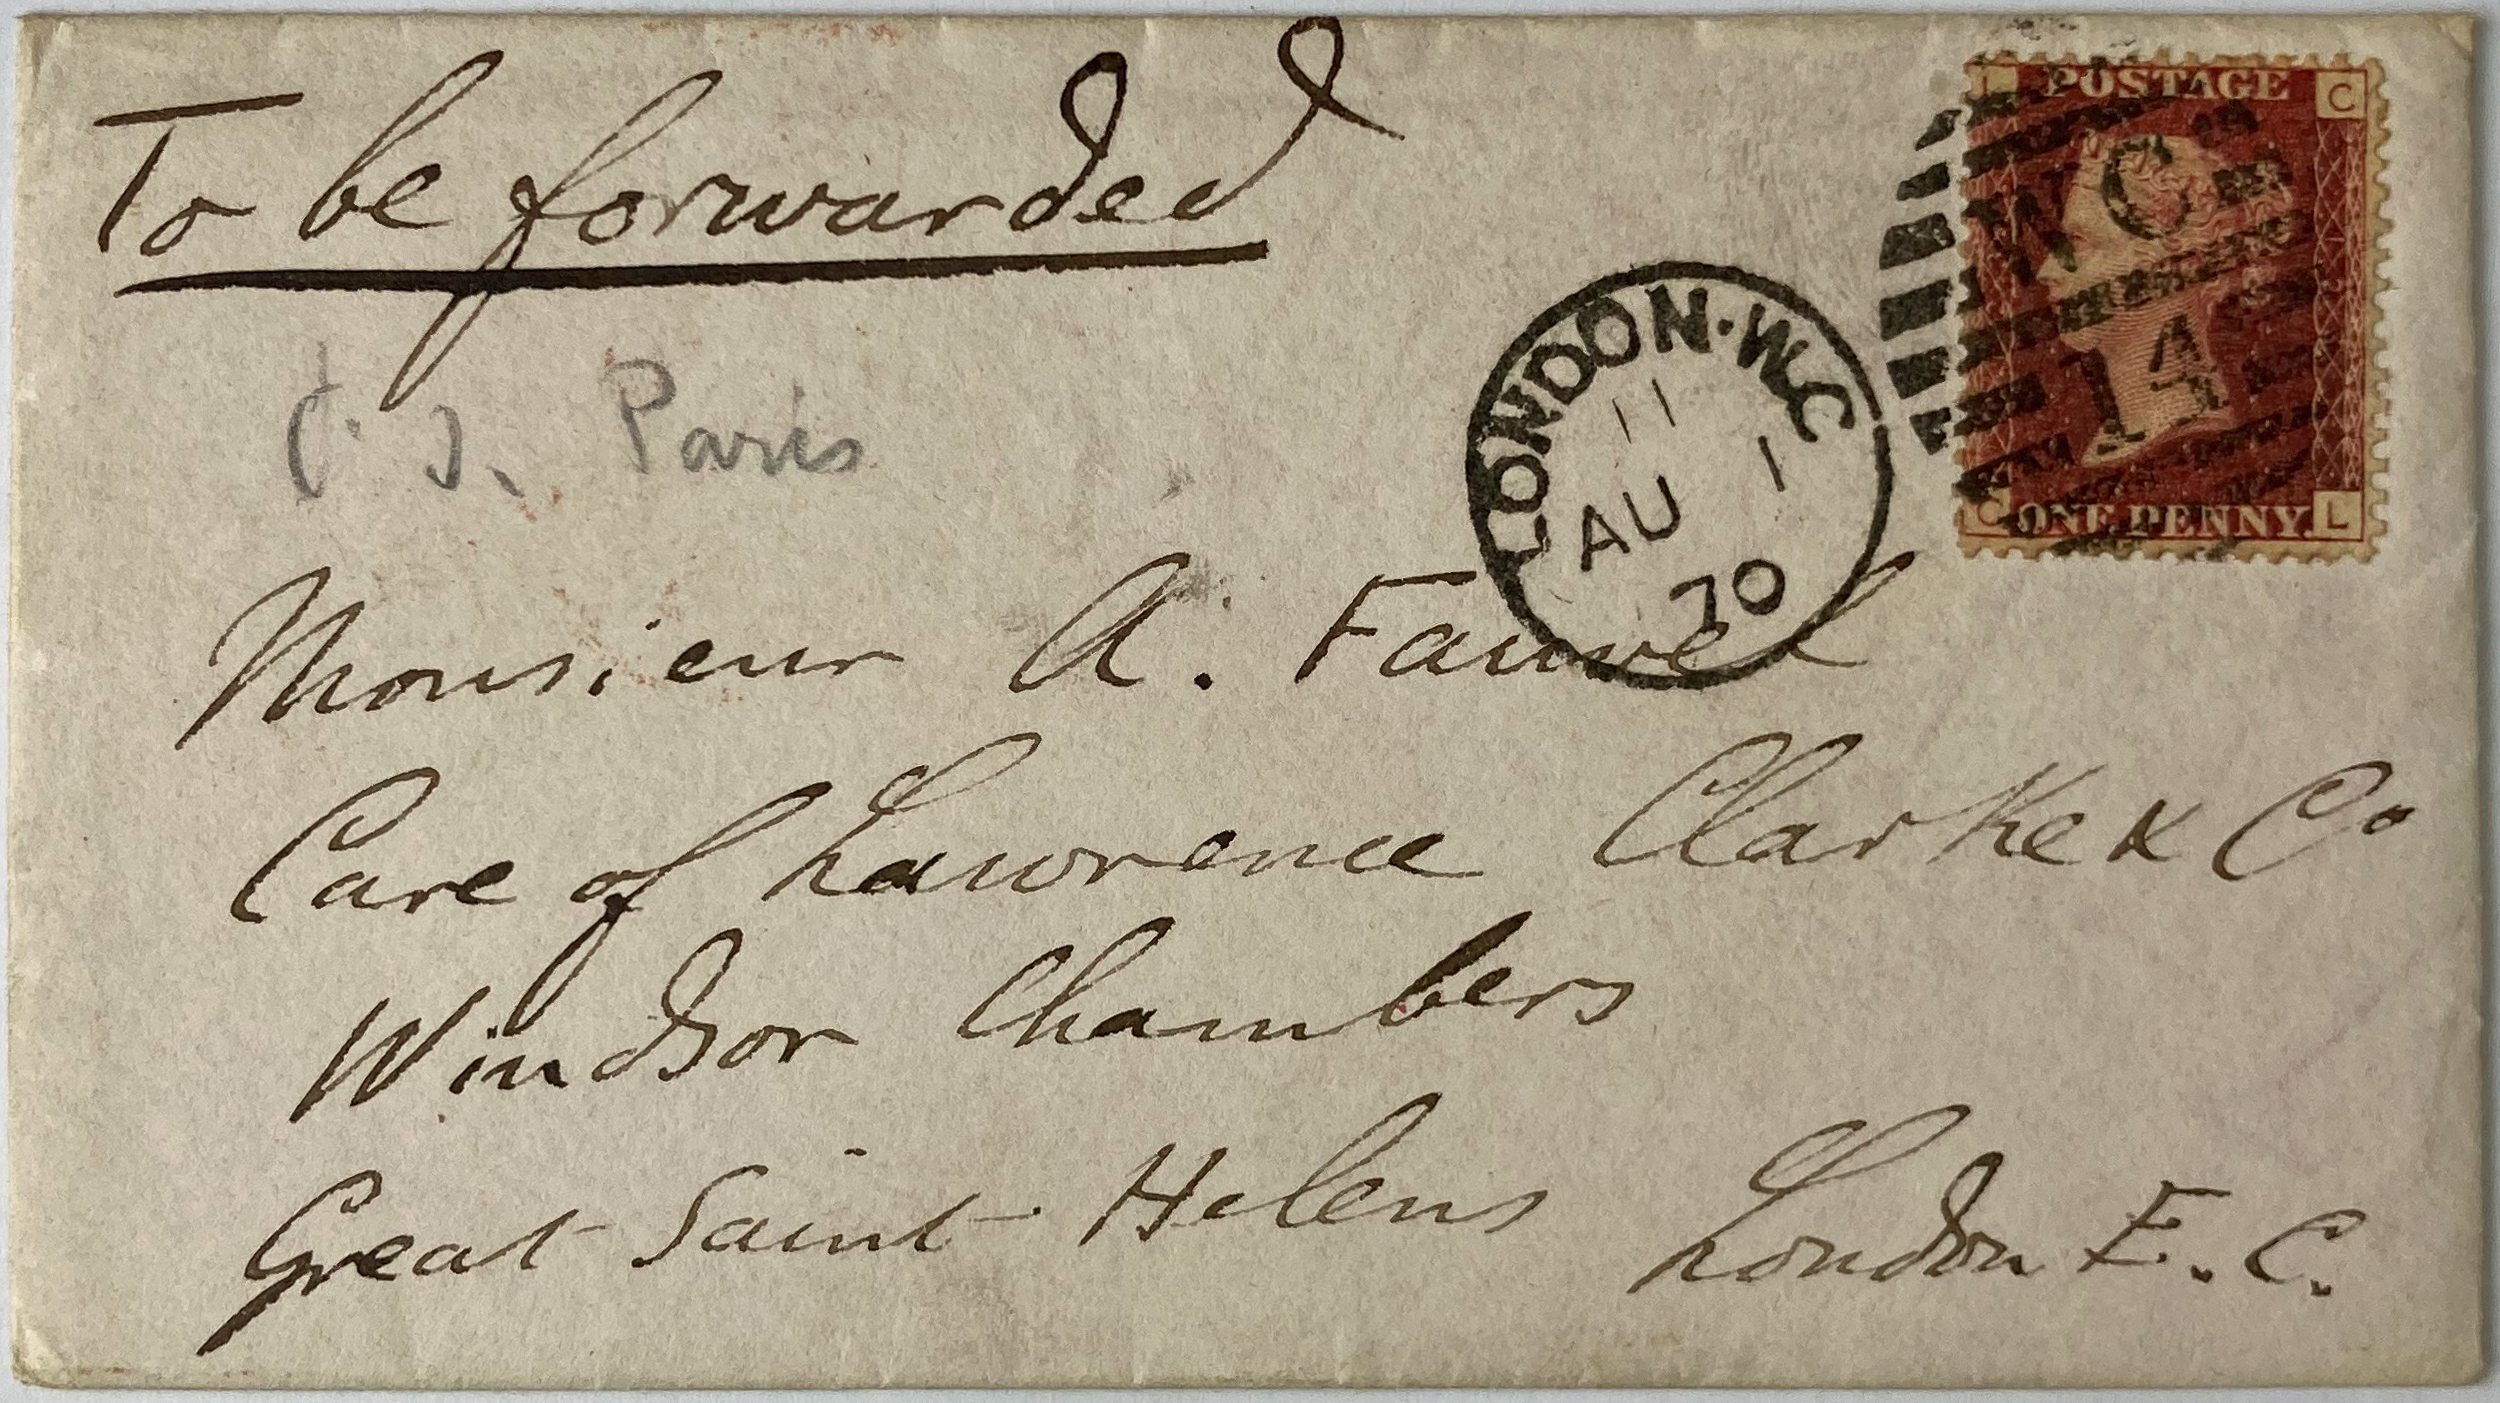 To be forwarded
Paris
POSTAGE
C
WC
14
C
ONE PENNY.
L
LONDON·W.C
11
AU 1
70
Monsieur A. Fauvel
Care of Lawrence Clarke & Co
Windsor Chambers
Great Saint Helens London E.C.